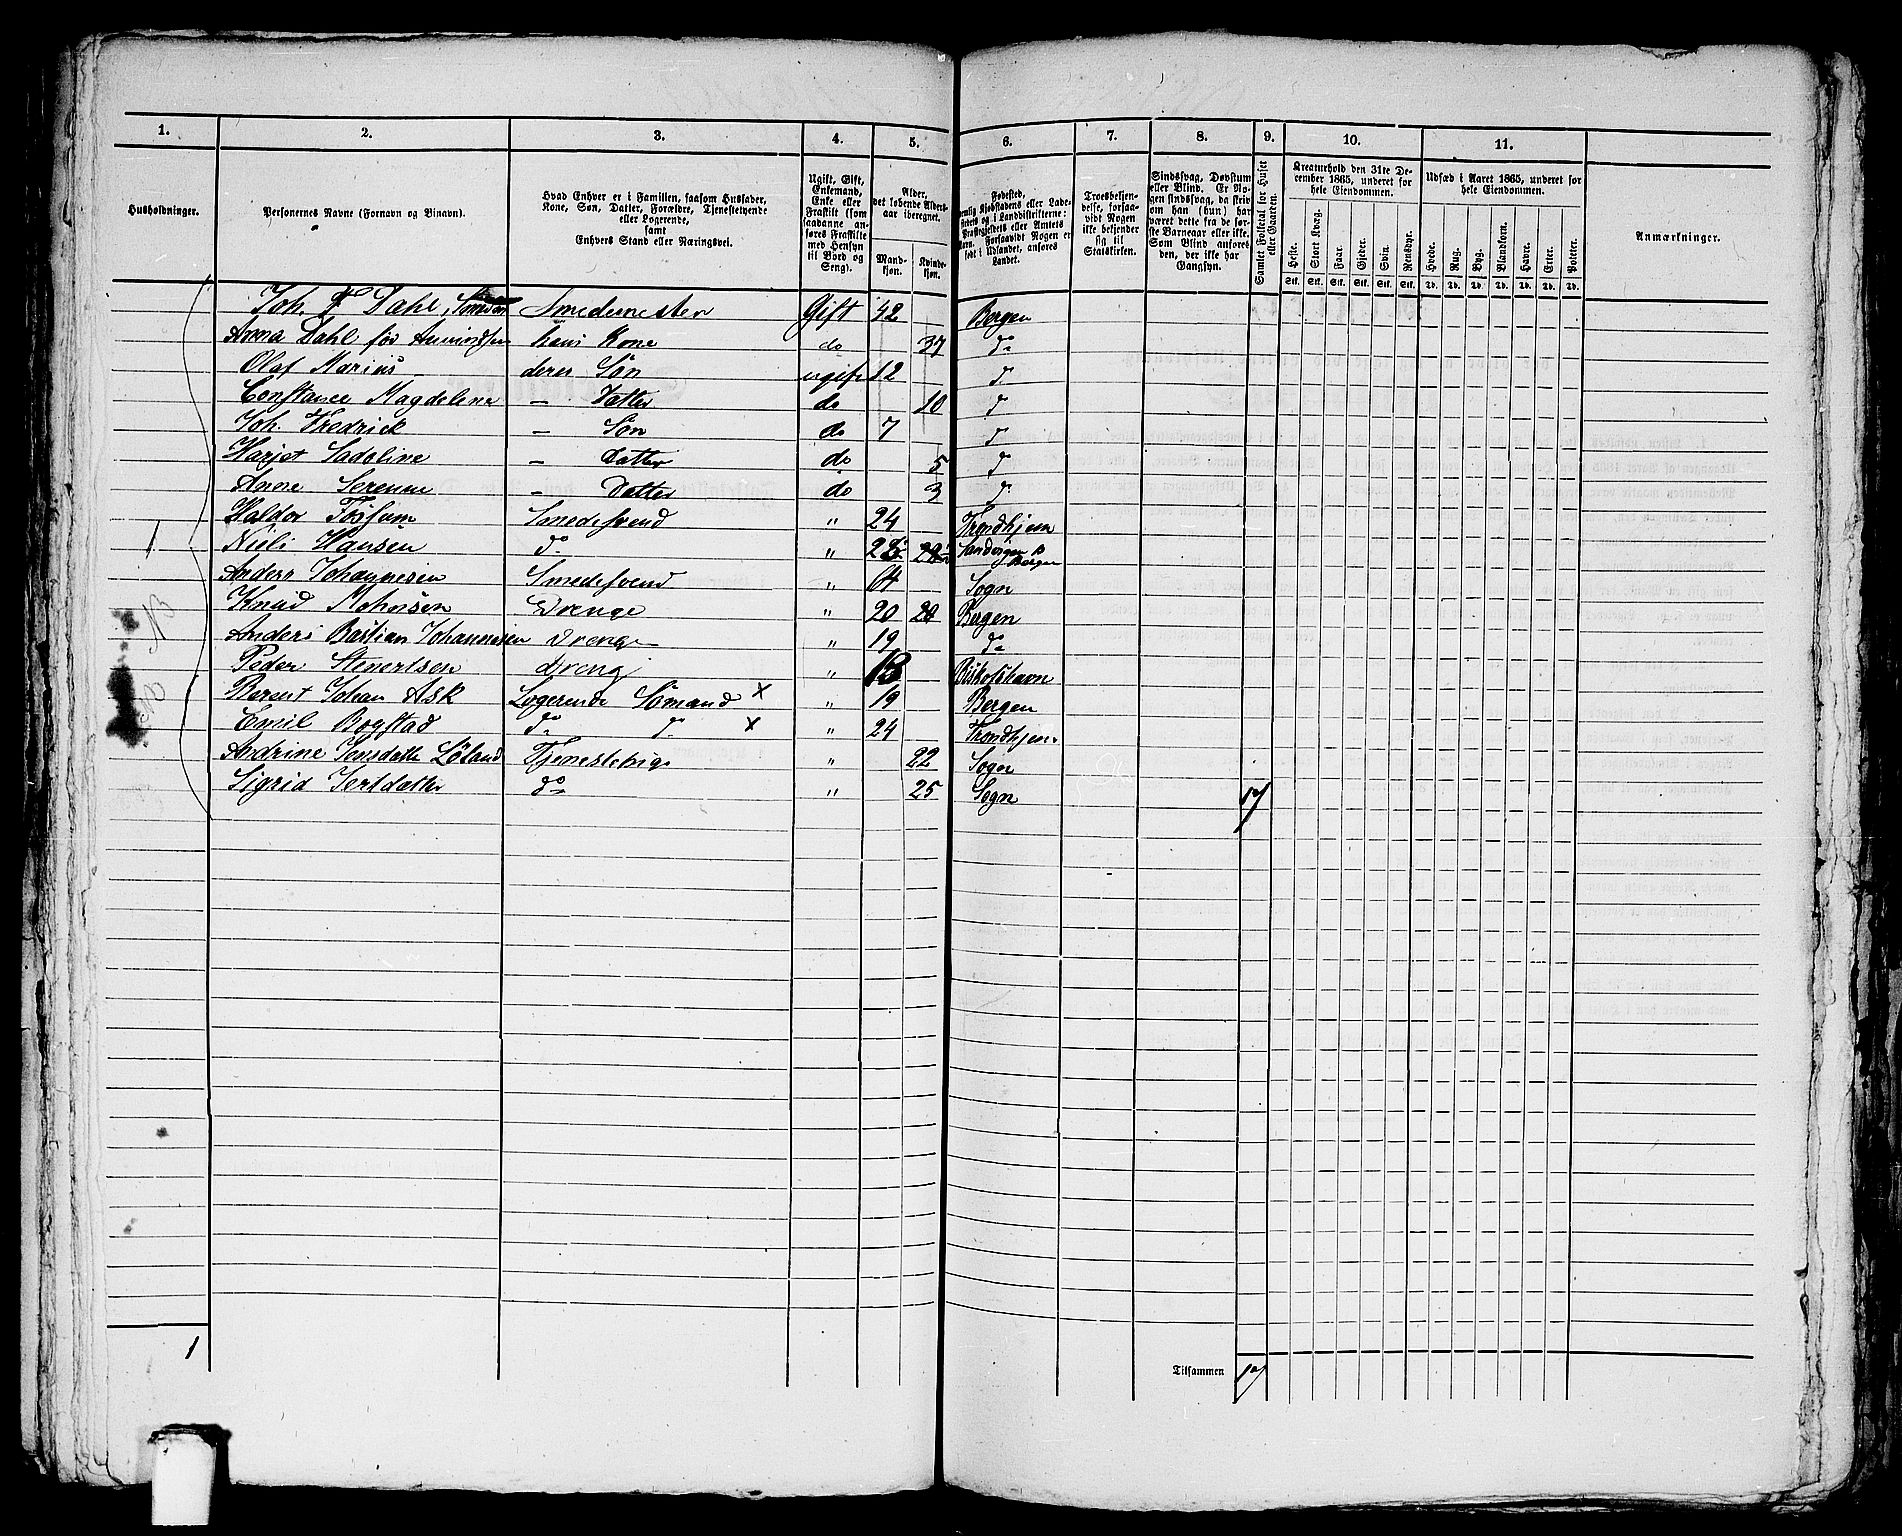 1. 2. 3. 4. 5. 6. 7. 8. 9. 10. 11.
Husholdninger.
Personernes Navne (Fornavn og Binavn).
Hvad Enhver er i Familien, saasom Husfader, Kone, Søn, Datter, Forældre, Tjenestetyende eller Logerende, samt Enhvers Stand eller Næringsvei.
Ugift, Gift, Enkemand, Enke eller Fraskilt (som saadanne anføres Fraskilte med Hensyn til Bord og Seng).
Alder, det løbende Alders-aar iberegnet.
Mand-kjøn. Kvinde-kjøn.
Fødested,
Troesbekjendelse, forsaavidt Nogen ikke bekjender sig til Statskirken.
Sindssvag, Døvstum eller Blind. Er Nogen sindssvag, da skrives om han (hun) har været dette fra de første Barneaar eller ikke. Som Blind anføres den, der ikke har Gangsyn.
Samlet Folketal for Huset eller Gaarden.
Kreaturhold den 31te December 1865, underet for hele Eiendommen.
Heste. Stort Kvæg. Faar. Gjeder. Svin. Rensdyr.
Stk. Stk. Stk. Stk. Stk. Stk.
Udsæd i Aaret 1865, underet for hele Eiendommen.
Hvede. Rug. Byg. Blandkorn. Havre. Erter. Poteter.
Td. Td. Td. Td. Td. Td. Td.
Anmærkninger.
Joh. F Dahl, Smedemester Gift 42 Bergen
Anna Dahl før Amundsen hans Kone do 37 do
Olaf Marius deres Søn ugift 12 do
Constance Magdelena – Datter do 10 do
Joh. Fredrick – Søn do 7 do
Harjet Sadoline – Datter do 5 do
Anne Serenne – Datter do 3 do
Haldor Fossum Smedesvend " 24 Trondhjem
1 Niels Hansen do " 28 Bergen
Anders Johannesen Smedesvend " Sogn
Knud Mohnsen Drenge " 20 20 Bergen
Anders Bastian Johannesen Dreng " 19 do
Peder Stenertsen dreng " 18 Biskofshavn
Berent Johan Ask Logerende Sömand × " 19 Bergen
Emil Bogstad do do × " 24 Trondhjem
Andrine Jensdatter Löland Tjenestepige " 22 Sogn
Sigrid Iertdatter do " 25 Sogn 17
1
Tilsammen 17